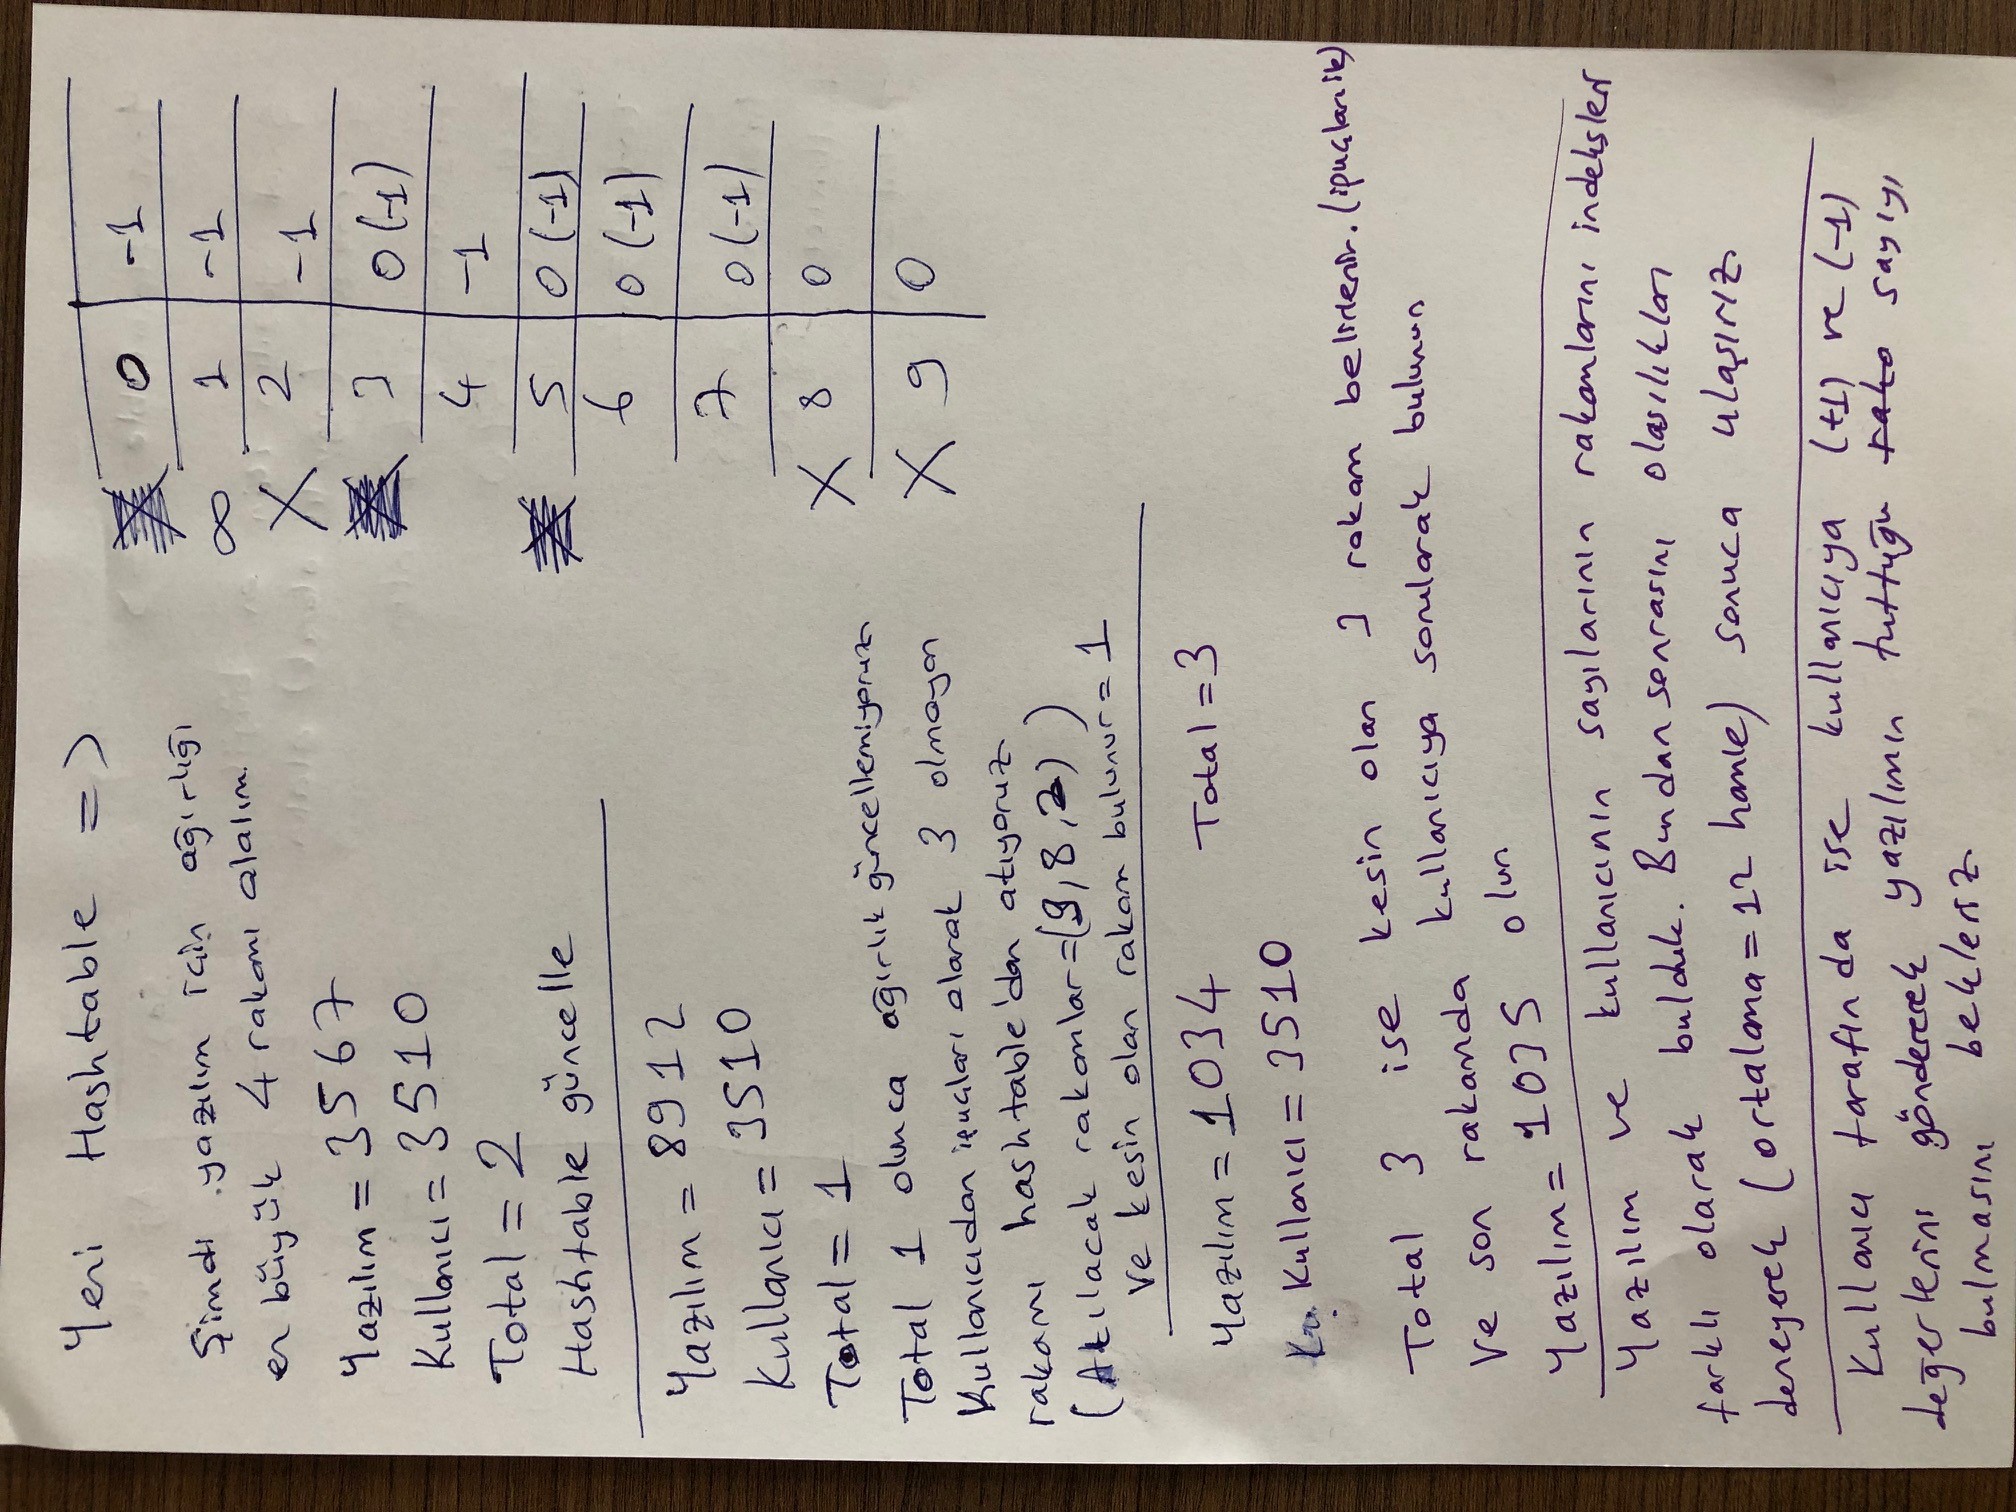 Yeni Hashtable =>
Şimdi yazılım için ağırlığı
en büyük 4 rakamı alalım.
Yazılım = 3567
Kullanıcı = 3510
Total = 2
Hashtable güncelle
Yazılım = 8912
Kullanıcı = 3510
Total = 1
Total 1 olunca ağırlık güncellemiyoruz
Kullanıcıdan ipuçları alarak 3 olmayan
rakamı hashtable'dan atıyoruz
(Atılacak rakamlar=(9,8,2))
ve kesin olan rakam bulunur = 1
Yazılım = 1034 Total = 3
Kullanıcı = 3510
Total 3 ise kesin olan 3 rakam belirlenir. (ipuçları ile)
Ve son rakamda kullanıcıya sorularak bulunur
Yazılım = 1035 olur
Yazılım ve kullanıcının sayılarının rakamlarını indeksleri
farklı olarak bulduk. Bundan sonrasını olasılıkları
deneyerek (ortalama = 12 hamle) sonuca ulaşırız
Kullanıcı tarafında ise kullanıcıya (+1) ve (-1)
değerlerini göndererek yazılımın tuttuğu rako sayıyı
bulmasını bekleriz
0 -1
∞ 1 -1
X 2 -1
3 0 (-1)
4 -1
5 0 (-1)
6 0 (-1)
7 0 (-1)
X 8 0
X 9 0